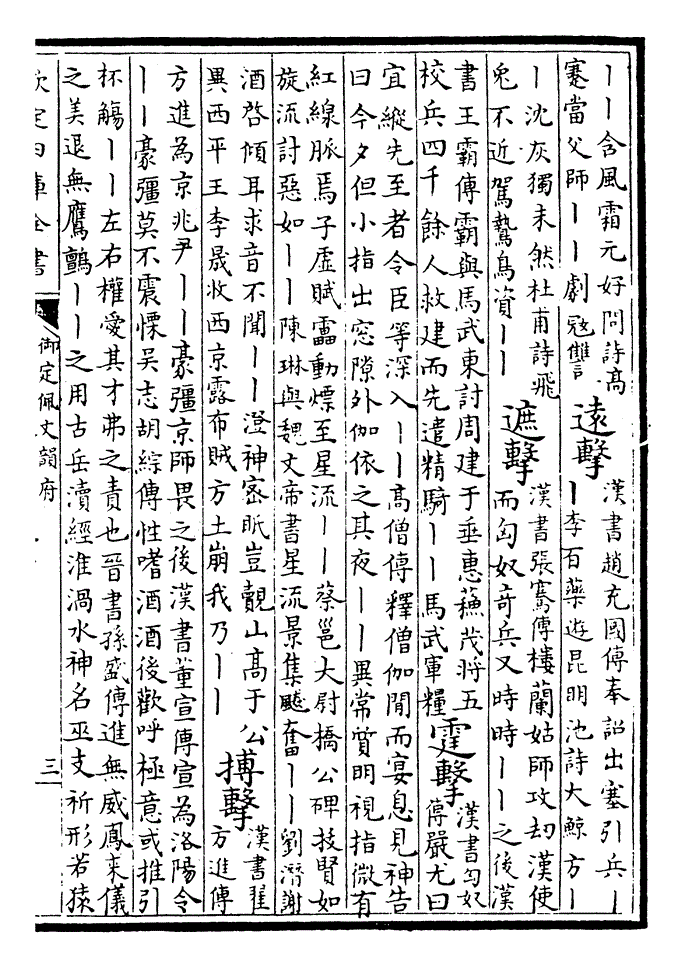 ｜｜含風霜元好問詩髙
蹇當父師｜｜劇㓂讐
遠擊
漢書趙充國傳奉詔出塞引兵｜
｜李百藥遊昆明池詩大鯨方｜
｜沈灰獨未然杜甫詩飛
兔不近駕鷙鳥資｜｜
遮擊
漢書張騫傳樓蘭姑師攻刼漢使
而匈奴奇兵又時時｜｜之後漢
書王霸傳霸與馬武東討周建于垂惠蘇茂將五
校兵四千餘人救建而先遣精騎｜｜馬武軍糧
霆擊
漢書匈奴
傳嚴尤曰
宜縱先至者令臣等深入｜｜髙僧傳釋僧伽閒而宴息見神告
曰今夕但小指出窓隙外伽依之其夜｜｜異常質明視指微有
紅線脈焉子虛賦靁動熛至星流｜｜蔡邕大尉橋公碑技賢如
旋流討惡如｜｜陳琳與魏文帝書星流景集飈奮｜｜劉潛謝
酒啓傾耳求音不聞｜｜澄神密眂豈覿山髙于公
異西平王李晟收西京露布賊方土崩我乃｜｜
搏擊
漢書翟
方進傳
方進為京兆尹｜｜豪彊京師畏之後漢書董宣傳宣為洛陽令
｜｜豪彊莫不震慄吴志胡綜傳性嗜酒酒後歡呼極意或推引
杯觴｜｜左右權愛其才弗之責也晉書孫盛傳進無威鳳來儀
之美退無鷹鸇｜｜之用古岳瀆經淮渦水神名巫支祈形若猿
欽定四庫全書
御定佩文韻府
三